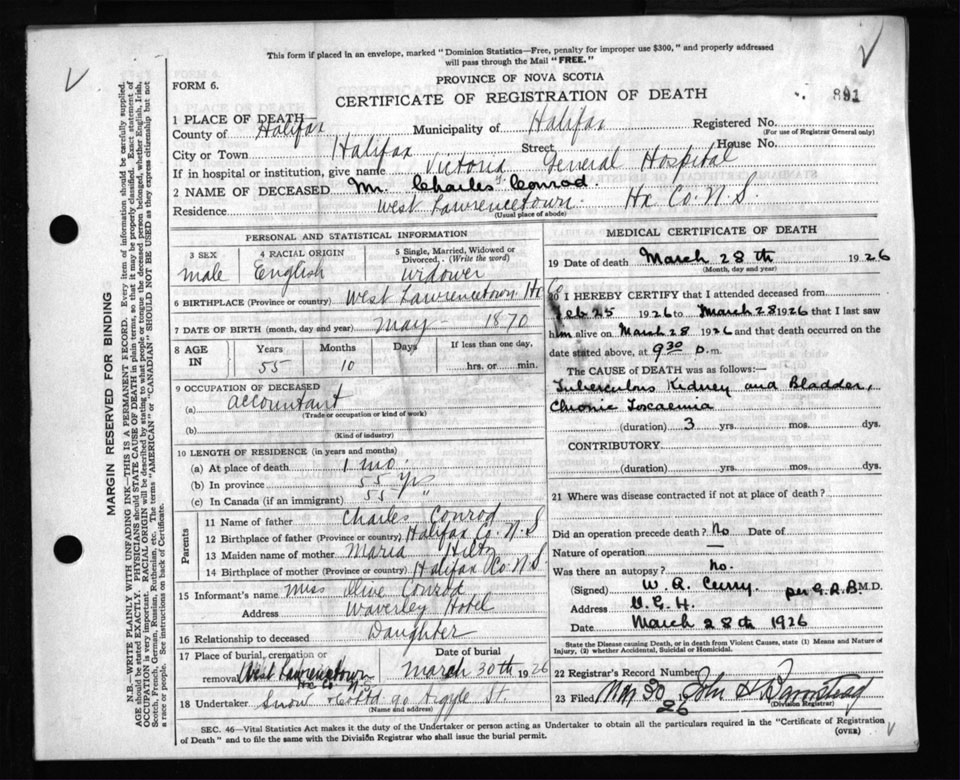 This form if placed in an envelope, marked "Dominion Statistics—Free, penalty for improper use $300," and properly addressed
will pass through the Mail "FREE."
PROVINCE OF NOVA SCOTIA
FORM 6.
CERTIFICATE OF REGISTRATION OF DEATH
891
1 PLACE OF DEATH—
County of Halifax Municipality of Halifax Registered No.
(For use of Registrar General only)
City or Town Halifax Street House No.
If in hospital or institution, give name Victoria General Hospital
2 NAME OF DECEASED Mr. Charles Conrod.
Residence West Lawrencetown Hx Co. N.S.
(Usual place of abode)
PERSONAL AND STATISTICAL INFORMATION
3 SEX 4 RACIAL ORIGIN 5 Single, Married, Widowed or
Divorced, (Write the word)
male English widower
6 BIRTHPLACE (Province or country) West Lawrencetown Hx Co
7 DATE OF BIRTH (month, day and year) May — 1870
8 AGE IN Years Months Days If less than one day,
55 10 hrs. or min.
9 OCCUPATION OF DECEASED
(a) accountant
(Trade or occupation or kind of work)
(b)
(Kind of industry)
10 LENGTH OF RESIDENCE (in years and months)
(a) At place of death 1 mo.
(b) In province 55 yrs
(c) In Canada (if an immigrant) 55 "
Parents
11 Name of father Charles Conrod
12 Birthplace of father (Province or country) Halifax Co. N.S
13 Maiden name of mother Maria
14 Birthplace of mother (Province or country) Halifax Co. N.S
15 Informant's name Miss Olive Conrod
Address Waverley Hotel
16 Relationship to deceased Daughter
17 Place of burial, cremation or Date of burial
removal West Lawrencetown March 30th 1926
Hx Co N.S
18 Undertaker Snow 90 Argyle St.
MEDICAL CERTIFICATE OF DEATH
19 Date of death March 28th 1926
(Month, day and year)
20 I HEREBY CERTIFY that I attended deceased from
Feb 25 1926 to March 28 1926 that I last saw
him alive on March 28 1926 and that death occurred on the
date stated above, at 9 30 p.m.
The CAUSE of DEATH was as follows:—
Tuberculous Kidney and Bladder,
Chronic Toxaemia
(duration) 3 yrs. mos. dys.
CONTRIBUTORY
(duration) yrs. mos. dys.
21 Where was disease contracted if not at place of death?
Did an operation precede death? No Date of
Nature of operation —
Was there an autopsy? No.
(Signed) W. R. Curry. per G.R.B. M.D.
Address V.G.H.
Date March 28th 1926
State the Disease causing Death, or in death from Violent Causes, state (1) Means and Nature of
Injury, (2) whether Accidental, Suicidal or Homicidal.
22 Registrar's Record Number
23 Filed Mar 30 John
26 (Division Registrar)
SEC. 46—Vital Statistics Act makes it the duty of the Undertaker or person acting as Undertaker to obtain all the particulars required in the "Certificate of Registration
of Death" and to file the same with the Division Registrar who shall issue the burial permit.
(OVER)
MARGIN RESERVED FOR BINDING
N.B.—WRITE PLAINLY WITH UNFADING INK—THIS IS A PERMANENT RECORD. Every item of information should be carefully supplied.
AGE should be stated EXACTLY. PHYSICIANS should STATE CAUSE OF DEATH in plain terms, so that it may be properly classified. Exact statement of
OCCUPATION is very important. RACIAL ORIGIN will be described by stating to what people or tongue the deceased person belonged, whether English, Irish,
Scotch, French, German, Russian, Ruthenian, etc. The terms "AMERICAN" or "CANADIAN" SHOULD NOT BE USED as they express citizenship but not
a race or people. See instructions on back of Certificate.